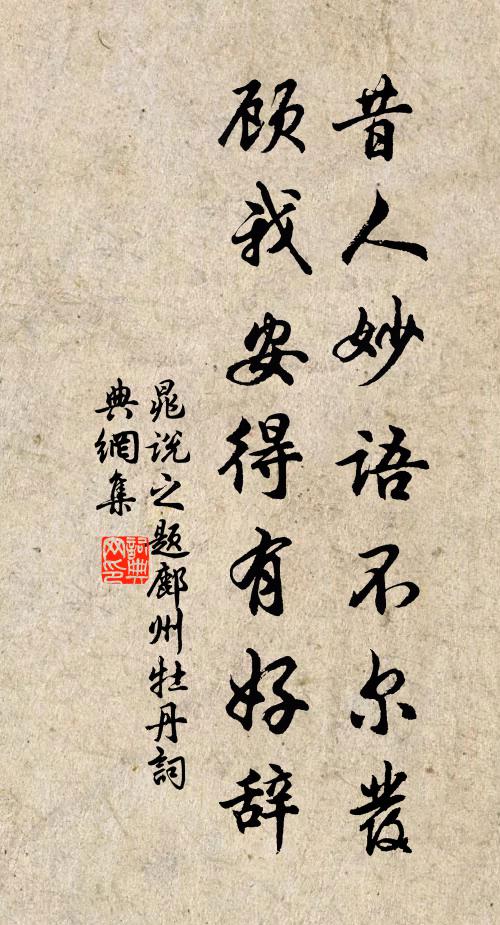 昔人妙语不尔發
顾我安得有好辞
晁说之题鄜州牡丹詞
典網集
詞典网印